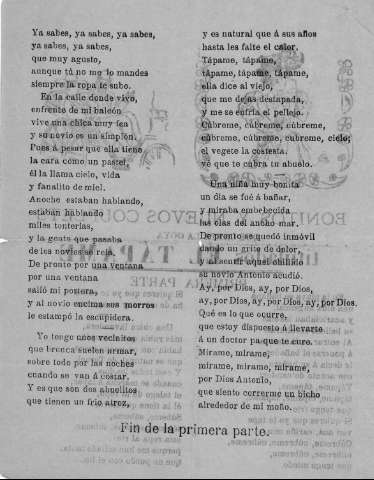 Ya sabes, ya sabes, ya sabes,
ya sabes, ya sabes,
que muy agusto,
aunque tú no me lo mandes
siempre la ropa te subo.
En la calle donde vivo,
enfrente de mi balcón
vive una chica muy fea
y su novio es un simplón.
Pues á pesar que ella tiene
la cara como un pastel,
él la llama cielo, vida
y fanalito de miel.
Anoche estaban hablando
estaban hablando
miles tonterías,
y la gente que pasaba
de los novios se reía.
De pronto por una ventana
por una ventana
salió mi postera,
y al novio encima sus morros
le estampó la escupidera.
Yo tengo unos vecinitos
que bronca suelen armar,
sobre todo por las noches
cuando se van á costar.
Y es que son dos abuelitos
que tienen un frio atroz,
y es natural que á sus años
hasta les falte el calor.
Tápame, tápame,
tápame, tápame, tápame,
ella dice al viejo,
que me dejas destapada,
y me se enfria el pellejo.
Cúbreme, cúbreme, cúbreme,
cúbreme, cúbreme, cúbreme, cielo;
el vegete la contesta.
vé que te cubra tu abuelo.
Una niña muy bonita
un dia se foé á bañar,
y miraba embebecida
las olas del ancho mar.
De pronto se quedó inmóvil
dando un grito de dolor,
y al sentir aquel chillido
su novio Antonio acudió.
Ay, por Dios, ay, por Dios,
ay, por Dios, ay, por Dios, ay, por Dios.
Qué es lo que ocurre,
que estoy dispuesto á llevarte
á un doctor pa que te cure.
Mirame, mirame,
mirame, mirame, mirame,
por Dios Antonio,
que siento correrme un bicho
alrededor de mi moño.
Fin de la primera parte.